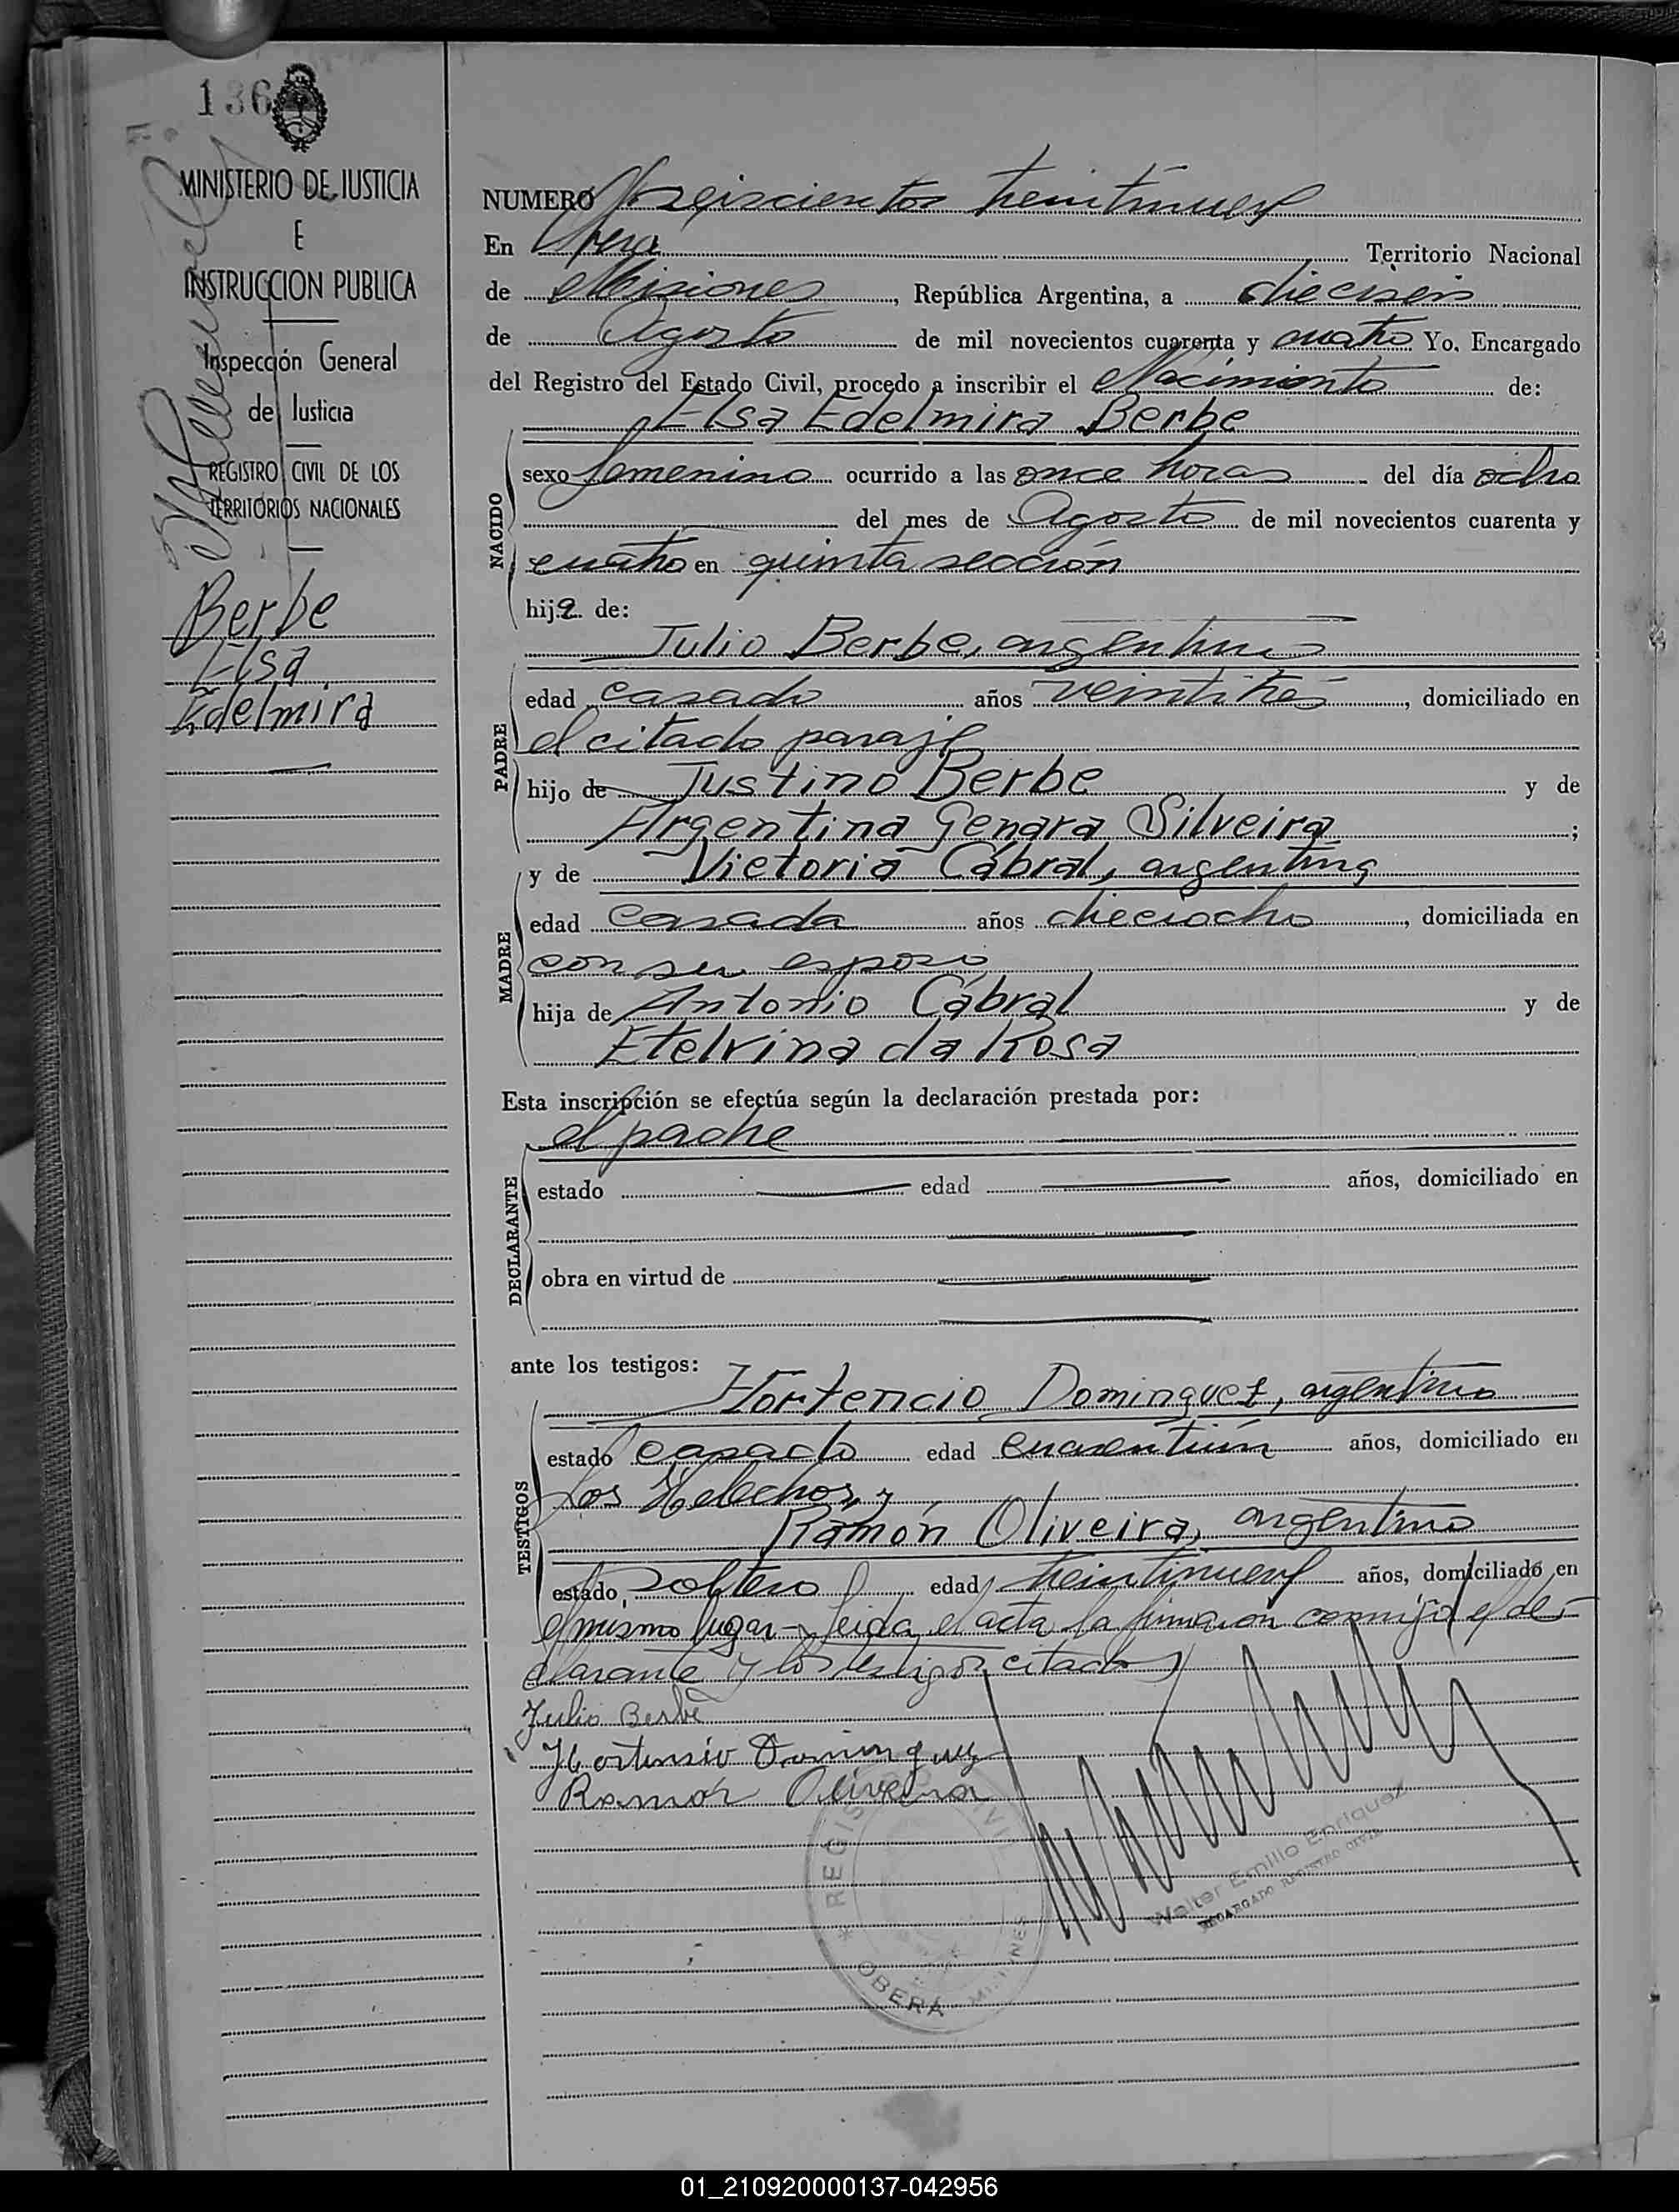 136
MINISTERIO DE JUSTICIA
E
INSTRUCCION PUBLICA
Inspección General
de Justicia
REGISTRO CIVIL DE LOS
TERRITORIOS NACIONALES
Berbe
Elsa
Edelmira
NUMERO seiscientos treintinueve
En Obera Territorio Nacional
de Misiones, República Argentina, a dieciseis
de Agosto de mil novecientos cuarenta y cuatro Yo, Encargado
del Registro del Estado Civil, procedo a inscribir el Nacimiento de:
Elsa Edelmira Berbe
NACIDO
sexo femenino ocurrido a las once horas del día ocho
del mes de Agosto de mil novecientos cuarenta y
cuatro en quinta sección
hija de:
Julio Berbe, argentino
PADRE
edad casado años veintitres, domiciliado en
el citado paraje
hijo de Justino Berbe y de
Argentina Genara Silveira;
y de Victoria Cabral, argentina
MADRE
edad casada años dieciocho, domiciliada en
con su esposo
hija de Antonio Cabral y de
Etelvina da Rosa
Esta inscripción se efectúa según la declaración prestada por:
el padre
DECLARANTE
estado edad años, domiciliado en
obra en virtud de
ante los testigos:
Hortencio Dominguez, argentino
TESTIGOS
estado casado edad cuarentiún años, domiciliado en
Los Helechos, y
Ramón Oliveira, argentino
estado soltero edad treintinueve años, domiciliado en
el mismo lugar - leida el acta la firmaron conmigo el de-
clarante y los testigos citados
Julio Berbe
Hortensio Dominguez
Ramón Oliveira
REGISTRO CIVIL
OBERÁ MISIONES
Walter Emilio Enriquez
ENCARGADO REGISTRO CIVIL
01_210920000137-042956